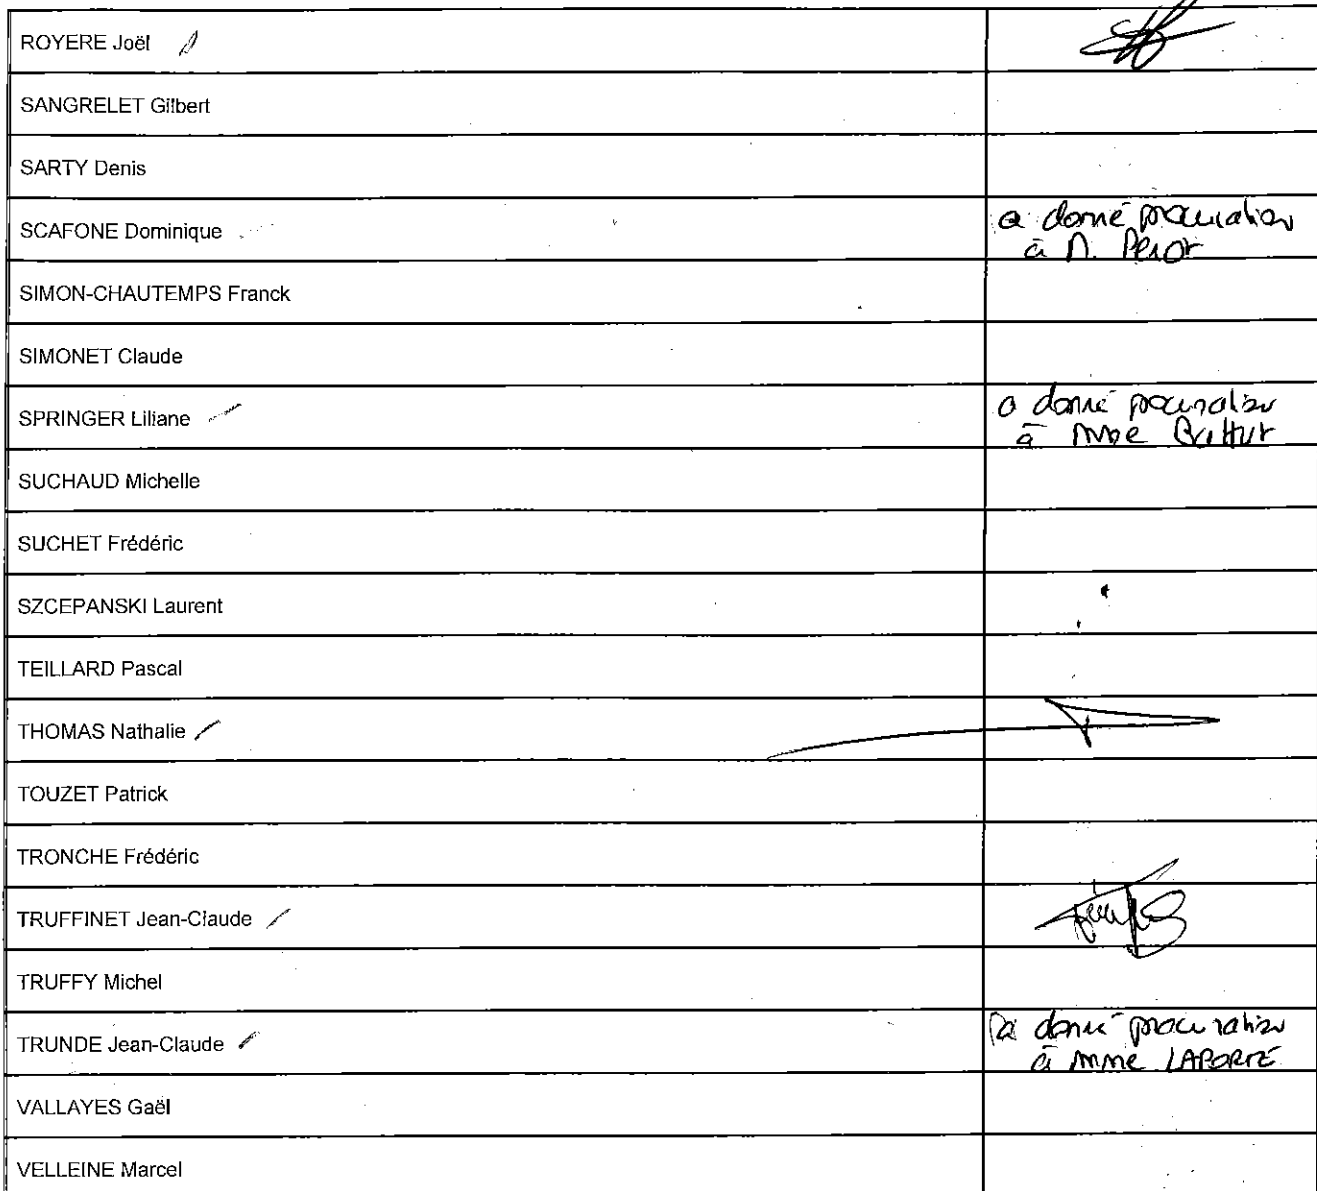 ROYERE Joël
SANGRELET Gilbert
SARTY Denis
SCAFONE Dominique
a donné procuration
à M. Perot
SIMON-CHAUTEMPS Franck
SIMONET Claude
SPRINGER Liliane
a donné procuration
à Mme Battut
SUCHAUD Michelle
SUCHET Frédéric
SZCEPANSKI Laurent
TEILLARD Pascal
THOMAS Nathalie
TOUZET Patrick
TRONCHE Frédéric
TRUFFINET Jean-Claude
TRUFFY Michel
TRUNDE Jean-Claude
a donné procuration
à Mme LAPORTE
VALLAYES Gaël
VELLEINE Marcel